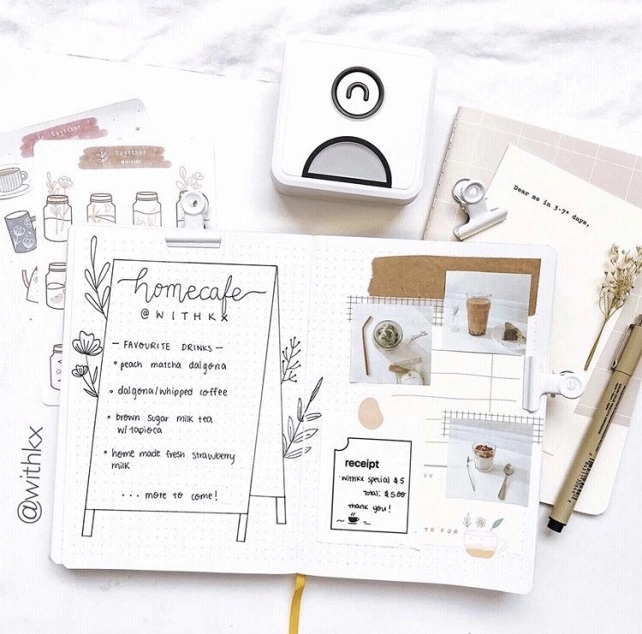 Dear me in 3-7* days,
homecafe
@WITHKX
— FAVOURITE DRINKS —
• peach matcha dalgona
• dalgona/whipped coffee
• brown sugar milk tea
w/tapioca
• home made fresh strawberry
milk
... more to come!
receipt
withkx special $5
Total: $5.00
thank you!
@withkx